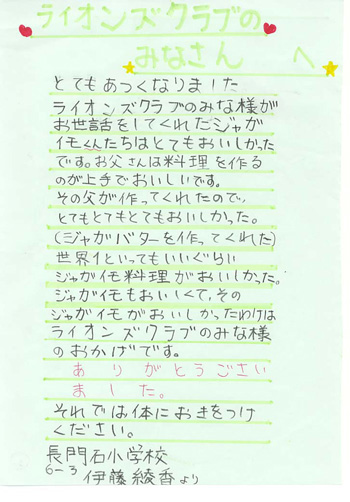 ライオンズクラブの
みなさん へ
とてもあつくなりました
ライオンズクラブのみな様が
お世話をしてくれたジャガ
イモくんたちはとてもおいしかった
です。お父さんは料理を作る
のが上手でおいしいです。
その父が作ってくれたので、
とてもとてもとてもおいしかった。
(ジャガバターを作ってくれた)
世界1といってもいいぐらい
ジャガイモ料理がおいしかった。
ジャガイモもおいしくて、その
ジャガイモがおいしかったわけは
ライオンズクラブのみな様
のおかげです。
ありがとうござい
ました。
それでは体におきをつけ
ください。
長門石小学校
6-3 伊藤綾香より